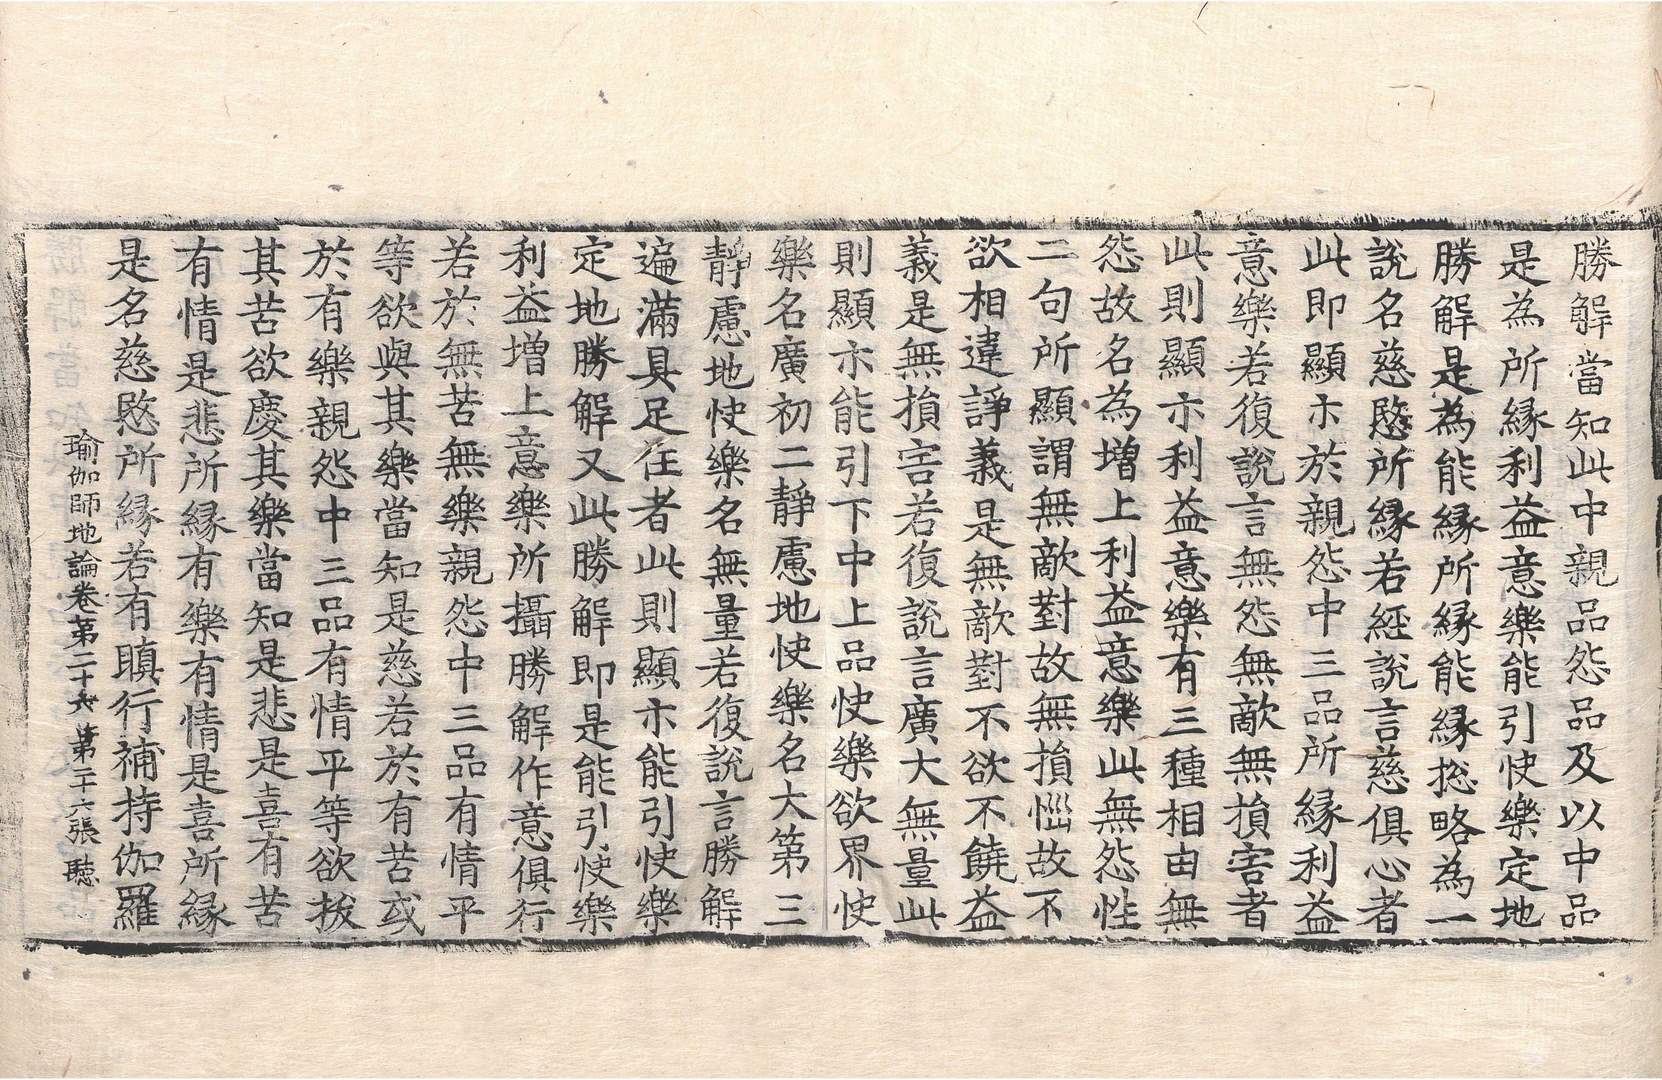 勝解當知此中親品怨品及以中品
是為所縁利益意樂能引快樂定地
勝解是為能縁所縁能縁捴略為一
說名慈愍所縁若經說言慈俱心者
此即顯亦於親怨中三品所縁利益
意樂若復說言無怨無敵無損害者
此則顯亦利益意樂有三種相由無
怨故名為增上利益意樂此無怨性
二句所顯謂無敵對故無損惱故不
欲相違諍義是無敵對不欲不饒益
義是無損害若復說言廣大無量此
則顯亦能引下中上品快樂欲界快
樂名廣初二靜慮地快樂名大第三
靜慮地快樂名無量若復說言勝解
遍滿具足住者此則顯亦能引快樂
定地勝解又此勝解即是能引快樂
利益增上意樂所攝勝解作意俱行
若於無苦無樂親怨中三品有情平
等欲與其樂當知是慈若於有苦或
於有樂親怨中三品有情平等欲拔
其苦欲慶其樂當知是悲是喜有苦
有情是悲所縁有樂有情是喜所縁
是名慈愍所縁若有瞋行補特伽羅
瑜伽師地論卷第二十六 第二十六張 聽